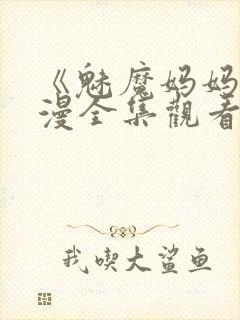 《魅魔妈妈
漫全集觀看
我喫大鯊鱼